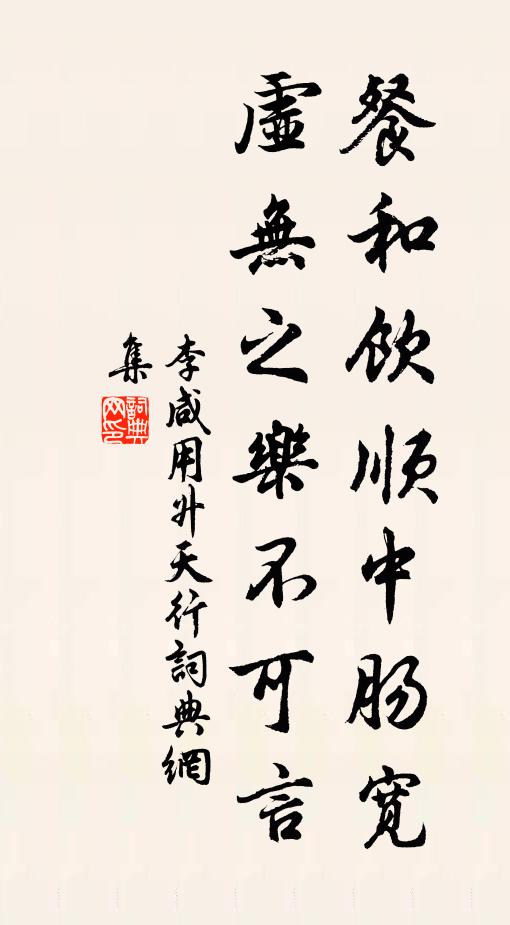 餐和飲順中腸寬
虛無之樂不可言
李咸用升天行詞典網
集
詞典网印